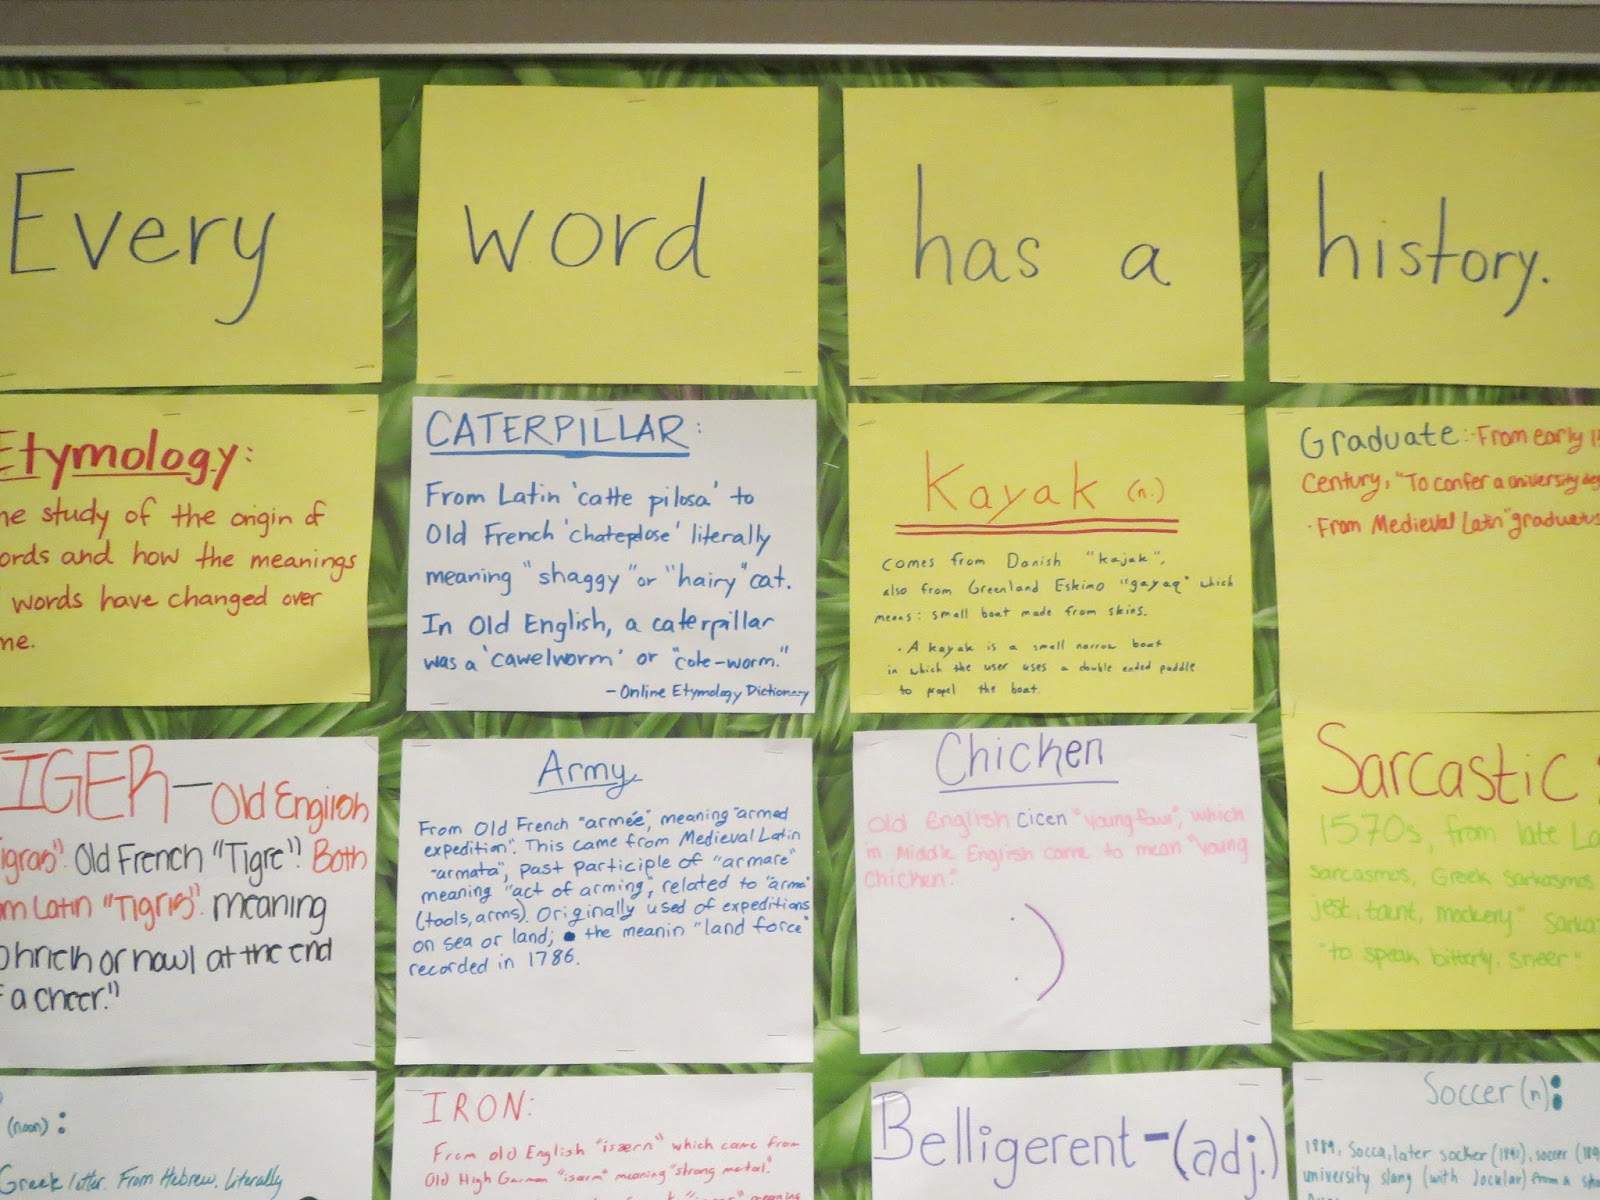 Every
word
has a
history.
Etymology:
he study of the origin of
ords and how the meanings
words have changed over
me.
CATERPILLAR:
From Latin 'catte pilosa' to
Old French 'chateplose' literally
meaning "shaggy" or "hairy" cat.
In Old English, a caterpillar
was a 'cawelworm' or "cole-worm."
- Online Etymology Dictionary
Kayak (n.)
comes from Danish "kajak",
also from Greenland Eskimo "gayaq" which
means: small boat made from skins.
· A kayak is a small narrow boat
in which the user uses a double ended paddle
to propel the boat.
Graduate: - From early 1
Century, "To confer a university deg
· From Medieval Latin "graduatus
IGER - Old English
igras". Old French "Tigre". Both
om Latin "Tigris". meaning
or howl at the end
f a cheer."
Army
From Old French "armée", meaning "armed
expedition". This came from Medieval Latin
"armata", past participle of "armare"
meaning "act of arming", related to "arma"
(tools, arms). Originally used of expeditions
on sea or land; the meanin "land force"
recorded in 1786.
Chicken
Old English cicen "young fowl", which
in Middle English came to mean "young
chicken."
: )
Sarcastic:
1570s, from late La
sarcasmos, Greek sarkasmos
jest, taunt, mockery" sarka
"to speak bitterly, sneer"
(noon):
Greek letter. From Hebrew, literally
IRON:
From old English "isærn" which came from
Old High German "isarn" meaning "strong metal."
meaning
Belligerent - (adj.)
Soccer (n):
1889, Socca, later socker (1891), soccer (189
university slang (with jocular) from a sh